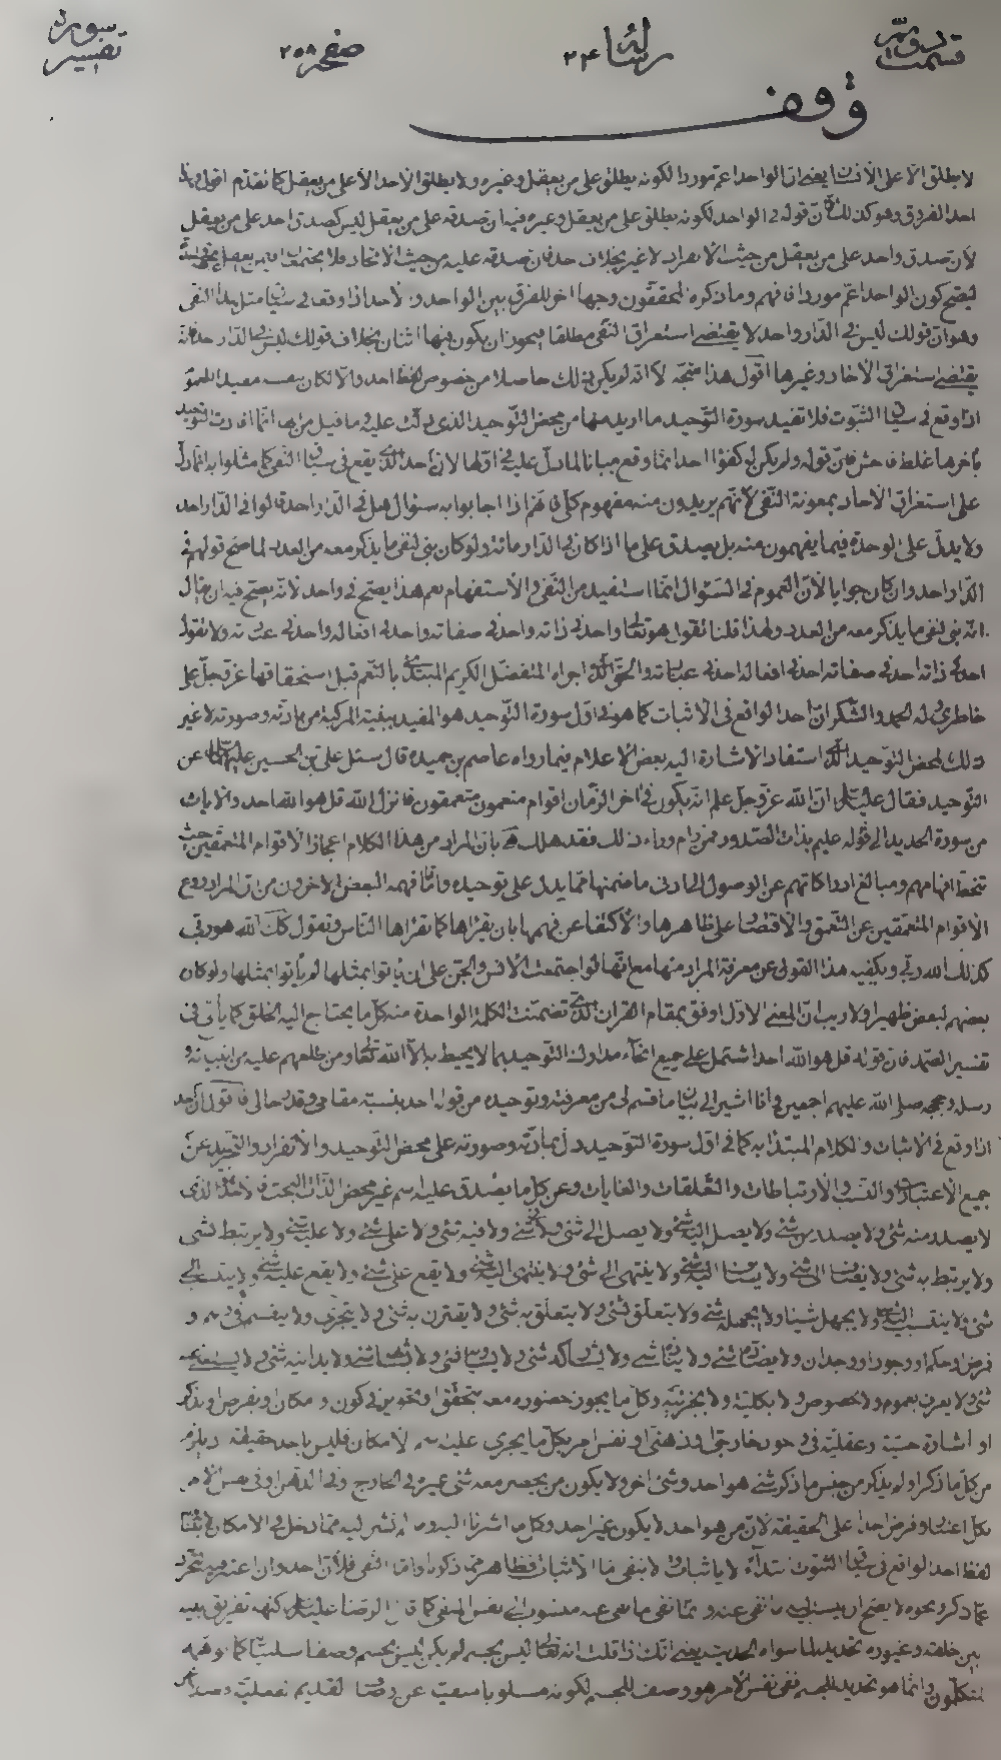 قسمت دوم رسالة ٢٤ صفحه ٢٥٨ تفسير سورة
وقف
لا يطلق الا على الافراد يعنى ان الواحد اعم موردا لكونه يطلق على من يعقل وغيره ولا يطلق الاحد الا على من يعقل كما تقدم اقول وهذا
احد الفروق وهو كذلك لان قوله فى الواحد لكونه يطلق على من يعقل وغيره فيه ان صدقه على من يعقل ليس كصدق احد على من يعقل
لان صدق واحد على من يعقل من حيث الانفراد لا غير بخلاف احد فان صدقه عليه من حيث الاتحاد
ليصح كون الواحد اعم موردا فافهم وما ذكره المحققون وجها اخر للفرق بين الواحد والاحد اذا وقعا فى سياق مثل هذا النفى
وهو ان قولك ليس فى الدار واحد لا يقتضى استغراق النفى مطلقا فيجوز ان يكون فيها اثنان بخلاف قولك ليس فى الدار احد فانه
يقتضى استغراق الاحاد وغيرها اقول هذا متجه لا انه لم يكن ذلك حاصلا من خصوص لفظ احد والا لكان بنفسه مفيدا للعموم
اذا وقع فى سياق الثبوت فلا تفيد سورة التوحيد ما اريد منها من محض التوحيد الذى دلت عليه ما قيل من انها انما افادت التوحيد
باخرها غلط فاحش فان قوله ولم يكن له كفوا احد انما وقع مبيانا لما دل عليه فى اولها لان احد الذى يقع فى سياق النفى كما مثلوا به انما دل
على استغراق الاحاد بمعونة النفى لانهم يريدون منه مفهوم كلى فانهم اذا اجابوا به سؤال هل فى الدار احد قالوا فى الدار احد
ولا يدل على الوحدة فيما يفهمون منه بل يصدق على ما اذا كان فى الدار مائة ولو كان بنى لنفى ما يذكر معه من العدد لما صح قولهم فى
الدار احد وان كان جوابا لان العموم فى السؤال انما استفيد من النفى فى الاستفهام نعم هذا يصح فى واحد لانه يصح فيه ان يقال
انه بنى لنفى ما يذكر معه من العدد ولهذا قلنا نقول هو تعالى واحد فى ذاته واحد فى صفاته واحد فى افعاله واحد فى عبادته ولا نقول
احد فى ذاته احد فى صفاته احد فى افعاله احد فى عبادته والحق الذى اجراه المتفضل الكريم المبتدئ بالنعم قبل استحقاقها عز وجل على
خاطرى وله الحمد والشكر ان احد الواقع فى الاثبات كما هو فى اول سورة التوحيد هو المفيد ببنيته المركبة من مادته وصورته لا غير
ذلك لمحض التوحيد الذى استفاد الاشارة اليه بعض الاعلام فيما رواه عاصم بن حميد قال سئل على بن الحسين عليهما السلام عن
التوحيد فقال عليه السلام ان الله عز وجل علم انه يكون فى اخر الزمان اقوام متعمقون فانزل الله قل هو الله احد والايات
من سورة الحديد الى قوله عليم بذات الصدور فمن رام وراء ذلك فقد هلك بان المراد من هذا الكلام اعجاز الاقوام المتعمقين حيث
افهامهم ومبالغ ادراكاتهم عن الوصول الى ادنى ما ضمنها مما يدل على توحيده واما فهمه البعض الاخرون من ان المراد ردع
الاقوام المتعمقين عن التعمق والاقتصار على ظاهرها والاكتفاء عن فهمها بان يقرأها كما تقرأها الناس وتقول كذلك الله ربى
كذلك الله ربى ويكفيه هذا القول عن معرفة المراد منها مع انها لو اجتمعت الانس والجن على ان ياتوا بمثلها لم يأتوا بمثلها ولو كان
بعضهم لبعض ظهيرا ولا ريب ان المعنى الاول اوفق بمقام القران الذى تضمنت الكلمة الواحدة منه كل ما يحتاج اليه الخلق كما يأتى فى
تفسير الصمد فان قوله قل هو الله احد اشتمل على جميع انحاء مدارك التوحيد بما لا يحيط به الا الله تعالى ومن اطلعهم عليه من انبيائه و
رسله وحججه صلى الله عليهم اجمعين وانا اشير الى بيان ما قسم لى من معرفته وتوحيده من قوله احد بنسبة مقامى وقدر حالى فاقول ان احد
اذا وقع فى الاثبات والكلام المبتدأ به كما فى اول سورة التوحيد دل بمادته وصورته على محض التوحيد والانفراد والتجريد عن
جميع الاعتبارات والنسب والارتباطات والتعلقات والغايات وعن كل ما يصدق عليه اسم غير محض الذات البحت فالاحد هو الذى
لا يصدر منه شئ ولا يصدر من شئ ولا يصل اليه شئ ولا يصل الى شئ ولا فى شئ ولا فيه شئ ولا على شئ ولا عليه شئ ولا يرتبط بشئ
ولا يرتبط به شئ ولا يضاف الى شئ ولا يضاف اليه شئ ولا ينتهى الى شئ ولا ينتهى اليه شئ ولا يقع على شئ ولا يقع عليه شئ ولا ينتسب الى
شئ ولا ينتسب اليه شئ ولا يجهل شيئا ولا يجهله شئ ولا يتعلق بشئ ولا يتعلق به شئ ولا يقترن به شئ ولا يتجزى ولا ينقسم فى وهم و
فرض او حكم او وجود او وجدان ولا يضاده شئ ولا ينافيه شئ ولا يشاكله شئ ولا يساويه شئ ولا يشابهه شئ ولا يدانيه شئ ولا
شئ ولا يعرف بعموم ولا بخصوص ولا بكلية ولا بجزئية وكل ما يجوز حضوره معه بتحقق او تجويز فى كون او مكان او بفرض او بذكر
او اشارة حسية وعقلية فى وجود خارجى او ذهنى او نفس امر بكل ما يجرى عليه اسم الامكان فليس باحد حقيقة
من كل ما ذكر او لم يذكر من جنس ما ذكر شئ هو احد وشئ اخر ولا يكون من يحصر معه شئ غيره فى الخارج وفى الذهن او فى نفس الامر
بكل اعتبار وفرض احدا على الحقيقة لان من هو احد لا يكون غير احد وكل ما اشرنا اليه وما لم نشر اليه مما دخل فى الامكان
لفظ احد الواقع فى سياق الثبوت ابتداء لا باثبات ولا بنفى اما الاثبات فظاهر مما ذكرناه واما النفى فلان احد وان اعتبر فيه التجرد
عما ذكر ونحوه لا يصح ان ينسب اليه ما نفى عنه وانما نفى ما نفى عنه منسوب الى نفس النفى كما قال الرضا عليه السلام كنهه تفريق بينه
بين خلقه وغيوره تحديد لما سواه الحديث يعنى انك اذا قلت انه تعالى ليس بجسم لم يكن ليس بجسم وصفا سلبيا كما توهمه
المتكلمون وانما هو تحديد للجسم ففى نفس الامر هو وصف للجسم لكونه مسلوبا